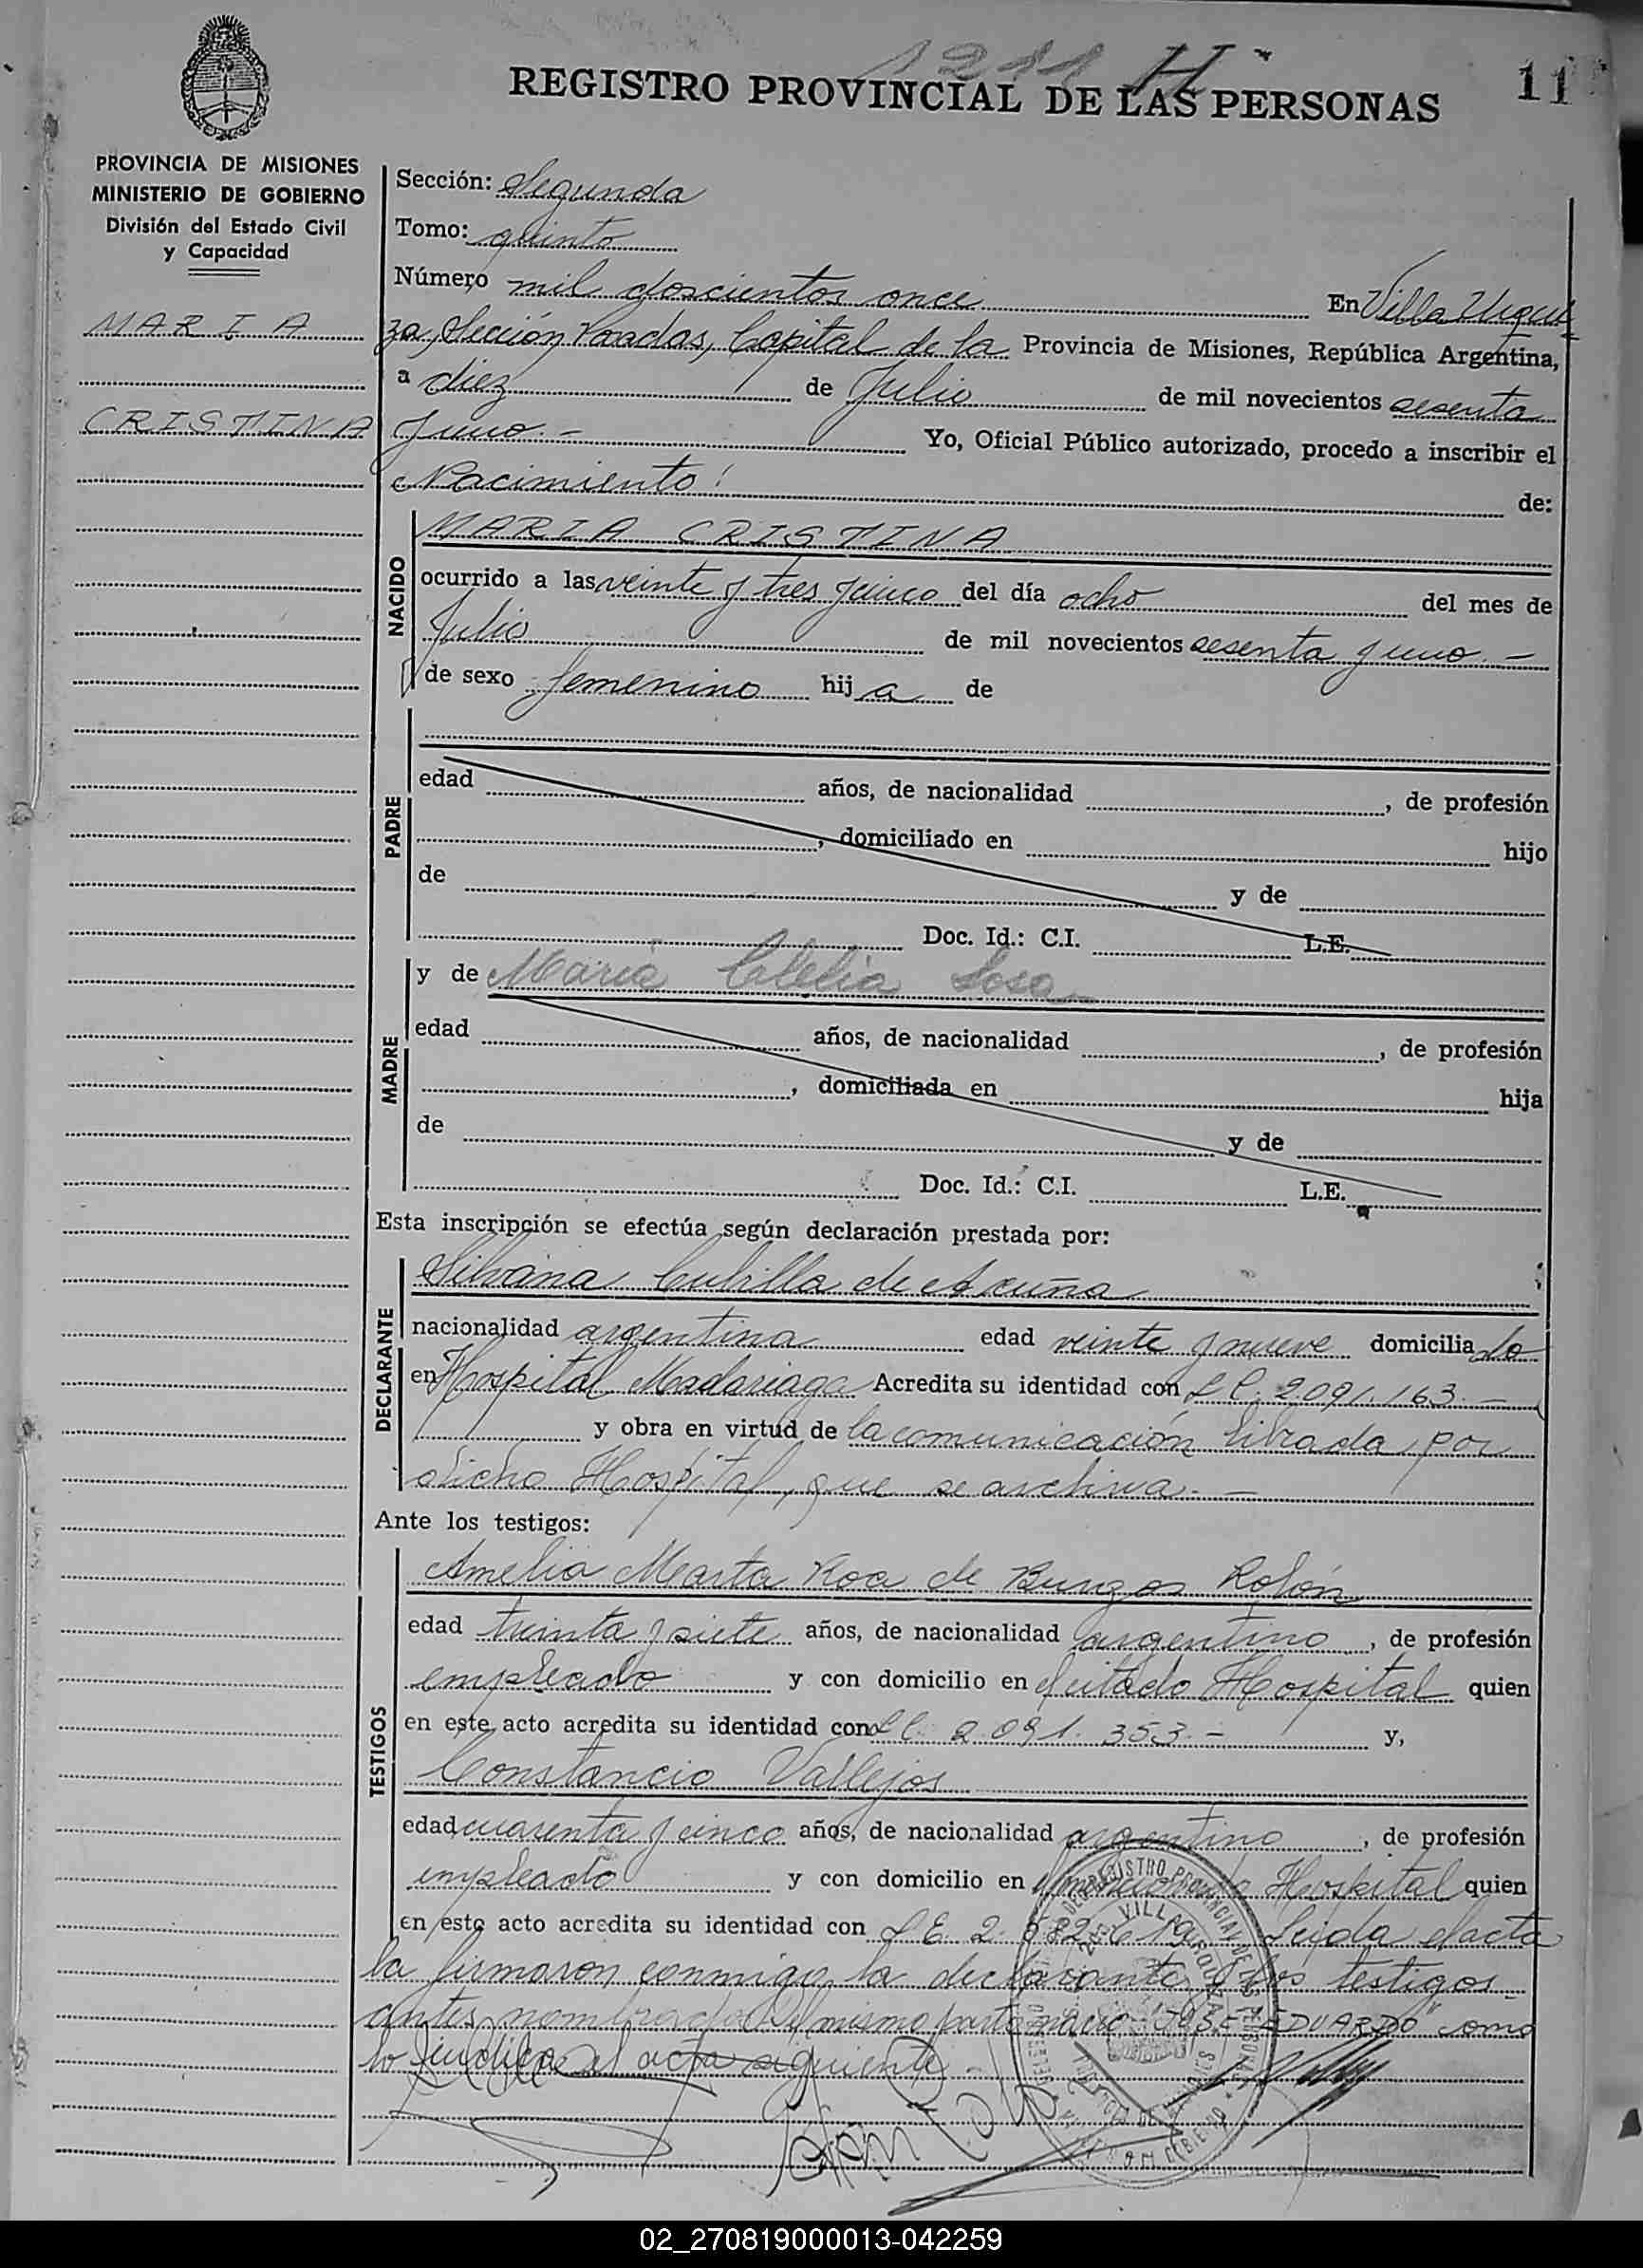 1211 H
REGISTRO PROVINCIAL DE LAS PERSONAS
11
PROVINCIA DE MISIONES
MINISTERIO DE GOBIERNO
División del Estado Civil
y Capacidad
MARIA
CRISTINA
Sección: Segunda
Tomo: quinto
Número mil doscientos once En Villa Urqui-
za, Sección Posadas, Capital de la Provincia de Misiones, República Argentina,
a diez de Julio de mil novecientos sesenta
y uno.- Yo, Oficial Público autorizado, procedo a inscribir el
Nacimiento: de:
NACIDO
MARIA CRISTINA
ocurrido a las veinte y tres y cinco del día ocho del mes de
Julio de mil novecientos sesenta y uno.-
de sexo femenino hij a de
PADRE
edad años, de nacionalidad , de profesión
, domiciliado en hijo
de y de
Doc. Id.: C.I. L.E.
MADRE
y de Maria Clelia Sosa
edad años, de nacionalidad , de profesión
, domiciliada en hija
de y de
Doc. Id.: C.I. L.E.
Esta inscripción se efectúa según declaración prestada por:
DECLARANTE
Silvana Cubilla de Acuña
nacionalidad argentina edad veinte y nueve domicilia da
en Hospital Madariaga Acredita su identidad con L C. 2.091.163.-
y obra en virtud de la comunicación librada por
dicho Hospital, que se archiva.-
Ante los testigos:
TESTIGOS
Amelia Marta Roa de Burgos Rolón
edad treinta y siete años, de nacionalidad argentino, de profesión
empleado y con domicilio en el citado Hospital quien
en este acto acredita su identidad con L C. 2.091.353.- y,
Constancio Vallejos
edad cuarenta y cinco años, de nacionalidad argentino, de profesión
empleado y con domicilio en Hospital quien
en este acto acredita su identidad con L E. 2. Leida el acta
la firmaron conmigo, la declarante y los testigos
antes nombrados. Del mismo parto nació "JOSE EDUARDO" como
lo indica el acta siguiente.-
02_270819000013-042259